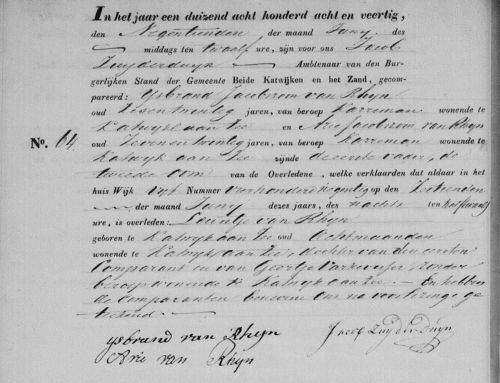 In het jaar een duizend acht honderd acht en veertig,
den Negentienden der maand Juny des
middags ten twaalf ure, zijn voor ons Jacob
Zuyderduyn Ambtenaar van den Bur-
gerlijken Stand der Gemeente Beide Katwijken en het Zand, gecom-
pareerd: Ysbrand Jacobszoon van Rhyn
oud Zesentwintig jaren, van beroep Karreman wonende te
Katwyk aan Zee en Arie Jacobszoon van Rhyn
No. 64. oud Zevenentwintig jaren, van beroep Karreman wonende te
Katwyk aan Zee zijnde de eerste vader, de
tweede Oom van de Overledene, welke verklaarden dat aldaar in het
huis Wijk Vyf Nummer Vierhonderd Negentig op den Zestienden
der maand Juny dezes jaars, des nachts ten half
ure, is overleden: van Rhyn
geboren te Katwyk aan Zee oud Acht maanden
wonende te Katwyk aan Zee, dochter van den eersten
Comparant en van Geertje zonder
beroep wonende te Katwyk aan Zee. En hebben
de Comparanten benevens ons na voorlezing ge-
teekend.
ysbrand van Rhyn
Jacob Zuyderduyn
Arie van Rhyn